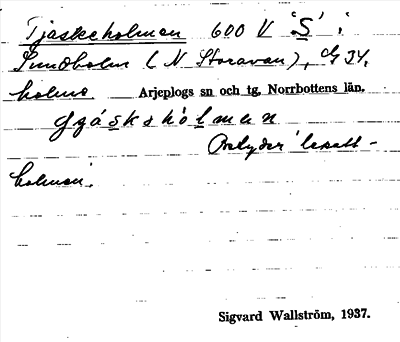 Tjäskeholmen 600 V 'S' i
Sundholm (N Storavan), G 34.
holme Arjeplogs sn och tg, Norrbottens län.
Betyder 'lespelt-
holmen'.
Sigvard Wallström, 1937.